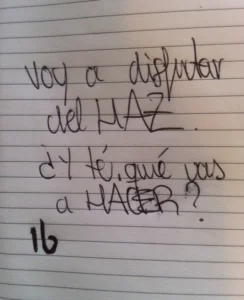 voy a disfrutar
del HAZ.
¿Y té, qué vas
a HACER?
16